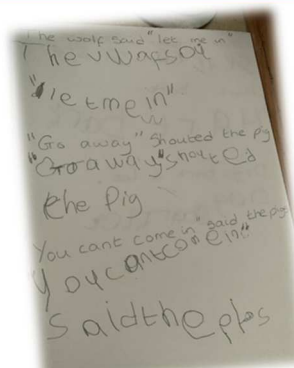 The wolf said "let me in"
The vwafsai
"letmein"
"Go away" Shouted the pig
"Go away"shouted
the Pig
You cant come in" said the pigs
"youcantcomein"
saidthepigs